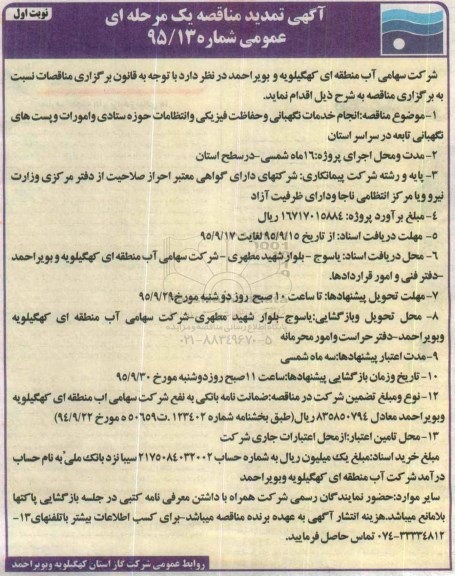 نوبت اول
آگهی تمدید مناقصه یک مرحله ای
عمومی شماره ۹۵/۱۳
شرکت سهامی آب منطقه ای کهگیلویه و بویراحمد در نظر دارد با توجه به قانون برگزاری مناقصات نسبت
به برگزاری مناقصه به شرح ذیل اقدام نماید.
۱-موضوع مناقصه:انجام خدمات نگهبانی وحفاظت فیزیکی وانتظامات حوزه ستادی وامورات وپست های
نگهبانی تابعه در سراسر استان
۲-مدت ومحل اجرای پروژه:۱۶ماه شمسی-درسطح استان
۳- پایه و رشته شرکت پیمانکاری: شرکتهای دارای گواهی معتبر احراز صلاحیت از دفتر مرکزی وزارت
نیرو ویا مرکز انتظامی ناجا ودارای ظرفیت آزاد
۴-مبلغ برآورد پروژه: ۱۶۷۱۷۰۱۵۸۸۴ ریال
۵- مهلت دریافت اسناد: از تاریخ ۹۵/۹/۱۵ لغایت ۹۵/۹/۱۷
۶- محل دریافت اسناد: یاسوج - بلوار شهید مطهری - شرکت سهامی آب منطقه ای کهگیلویه و بویراحمد
-دفتر فنی و امور قراردادها.
۷-مهلت تحویل پیشنهادها: تا ساعت ۱۰ صبح روز دوشنبه مورخ۹۵/۹/۲۹
۸- محل تحویل وبازگشایی:یاسوج-بلوار شهید مطهری-شرکت سهامی آب منطقه ای کهگیلویه
وبویراحمد-دفتر حراست وامور محرمانه
۹-مدت اعتبار پیشنهادها:سه ماه شمسی
۱۰-تاریخ وزمان بازگشایی پیشنهادها:ساعت ۱۱صبح روزدوشنبه مورخ ۹۵/۹/۳۰
۱۲- نوع ومبلغ تضمین شرکت در مناقصه:ضمانت نامه بانکی به نفع شرکت سهامی اب منطقه ای کهگیلویه
وبویراحمد معادل ۸۳۵۸۵۰۷۹۴ ریال(طبق بخشنامه شماره ۱۲۳۴۰۲ .ت۵۰۶۵۹ ه مورخ ۹۴/۹/۲۲)
۱۳-محل تامین اعتبار:ازمحل اعتبارات جاری شرکت
مبلغ خرید اسناد:مبلغ یک میلیون ریال به شماره حساب ۲۱۷۵۰۸۴۰۳۲۰۰۲ سیبا نزد بانک ملی به نام حساب
درآمد شرکت آب منطقه ای کهگیلویه وبویراحمد
سایر موارد:حضور نمایندگان رسمی شرکت همراه با داشتن معرفی نامه کتبی در جلسه بازگشایی پاکتها
بلامانع میباشد.هزینه انتشار آگهی به عهده برنده مناقصه میباشد-برای کسب اطلاعات بیشتر باتلفنهای۱۳-
۰۷۴-۳۳۳۳۴۸۱۲ تماس حاصل فرمایید.
روابط عمومی شرکت گاز استان کهگیلویه وبویراحمد
پایگاه اطلاع رسانی مناقصه و مزایده
۰۲۱-۸۸۳۴۹۶۷۰-۵